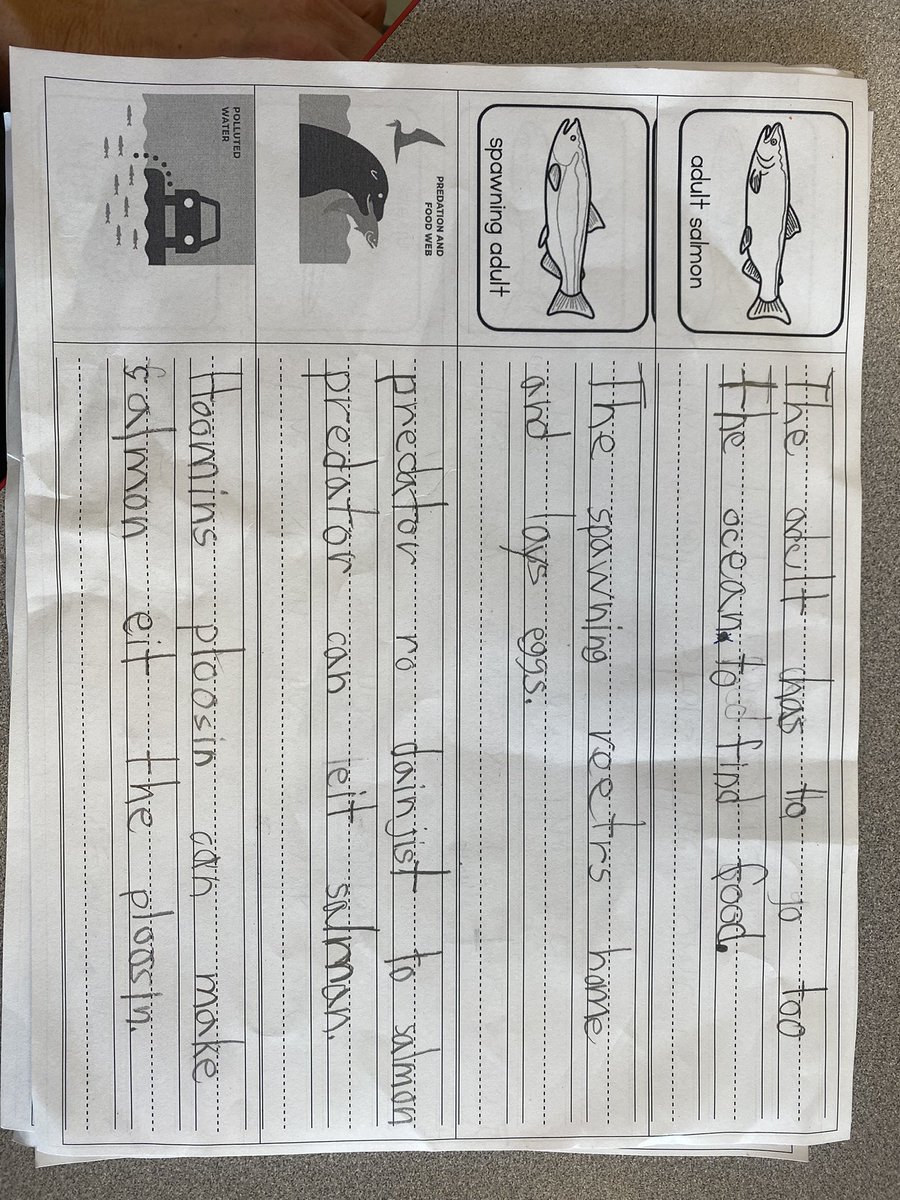 adult salmon
The adult has to go too
the ocean to find food.
spawning adult
The spawning reetrs home
and lays eggs.
PREDATION AND
FOOD WEB
predator ro dainjist to salmon
predator can eit salmon.
POLLUTED
WATER
Hoomins ploosin can make
salmon eit the ploosin.